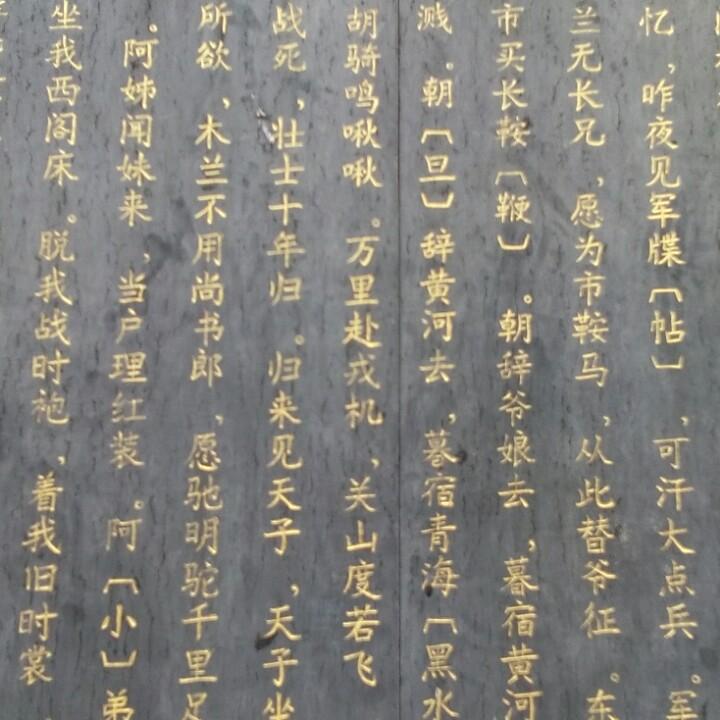 忆，昨夜见军牒〔帖〕，可汗大点兵。军
兰无长兄，愿为市鞍马，从此替爷征。东
市买长鞍〔鞭〕。朝辞爷娘去，暮宿黄河
溅。朝〔旦〕辞黄河去，暮宿青海〔黑水
胡骑鸣啾啾。万里赴戎机，关山度若飞
战死，壮士十年归。归来见天子，天子坐
所欲，木兰不用尚书郎，愿驰明驼千里足
。阿姊闻妹来，当户理红装。阿〔小〕弟
坐我西阁床。脱我战时袍，着我旧时裳